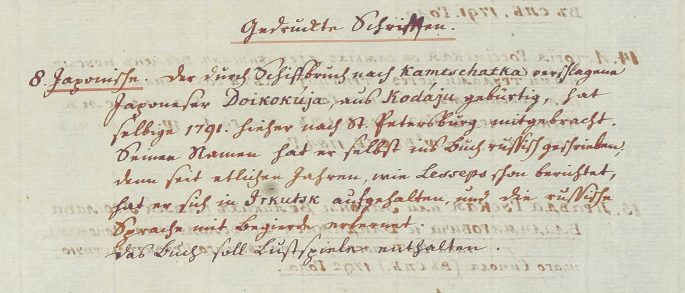 Gedruckte Schriften.
8. Japonische. Der durch Schiffbruch nach Kamtschatka verschlagene
Japoneser Doikokuja, aus Kodaju gebürtig, hat
selbige 1791. hieher nach St. Petersburg mitgebracht.
Seinen Namen hat er selbst ins Buch russisch geschrieben,
denn seit etlichen Jahren, wie Lesseps schon berichtet,
hat er sich in Irkutsk aufgehalten, und die russische
Sprache mit Begierde erlernet.
Das Buch soll Lustspiele enthalten.